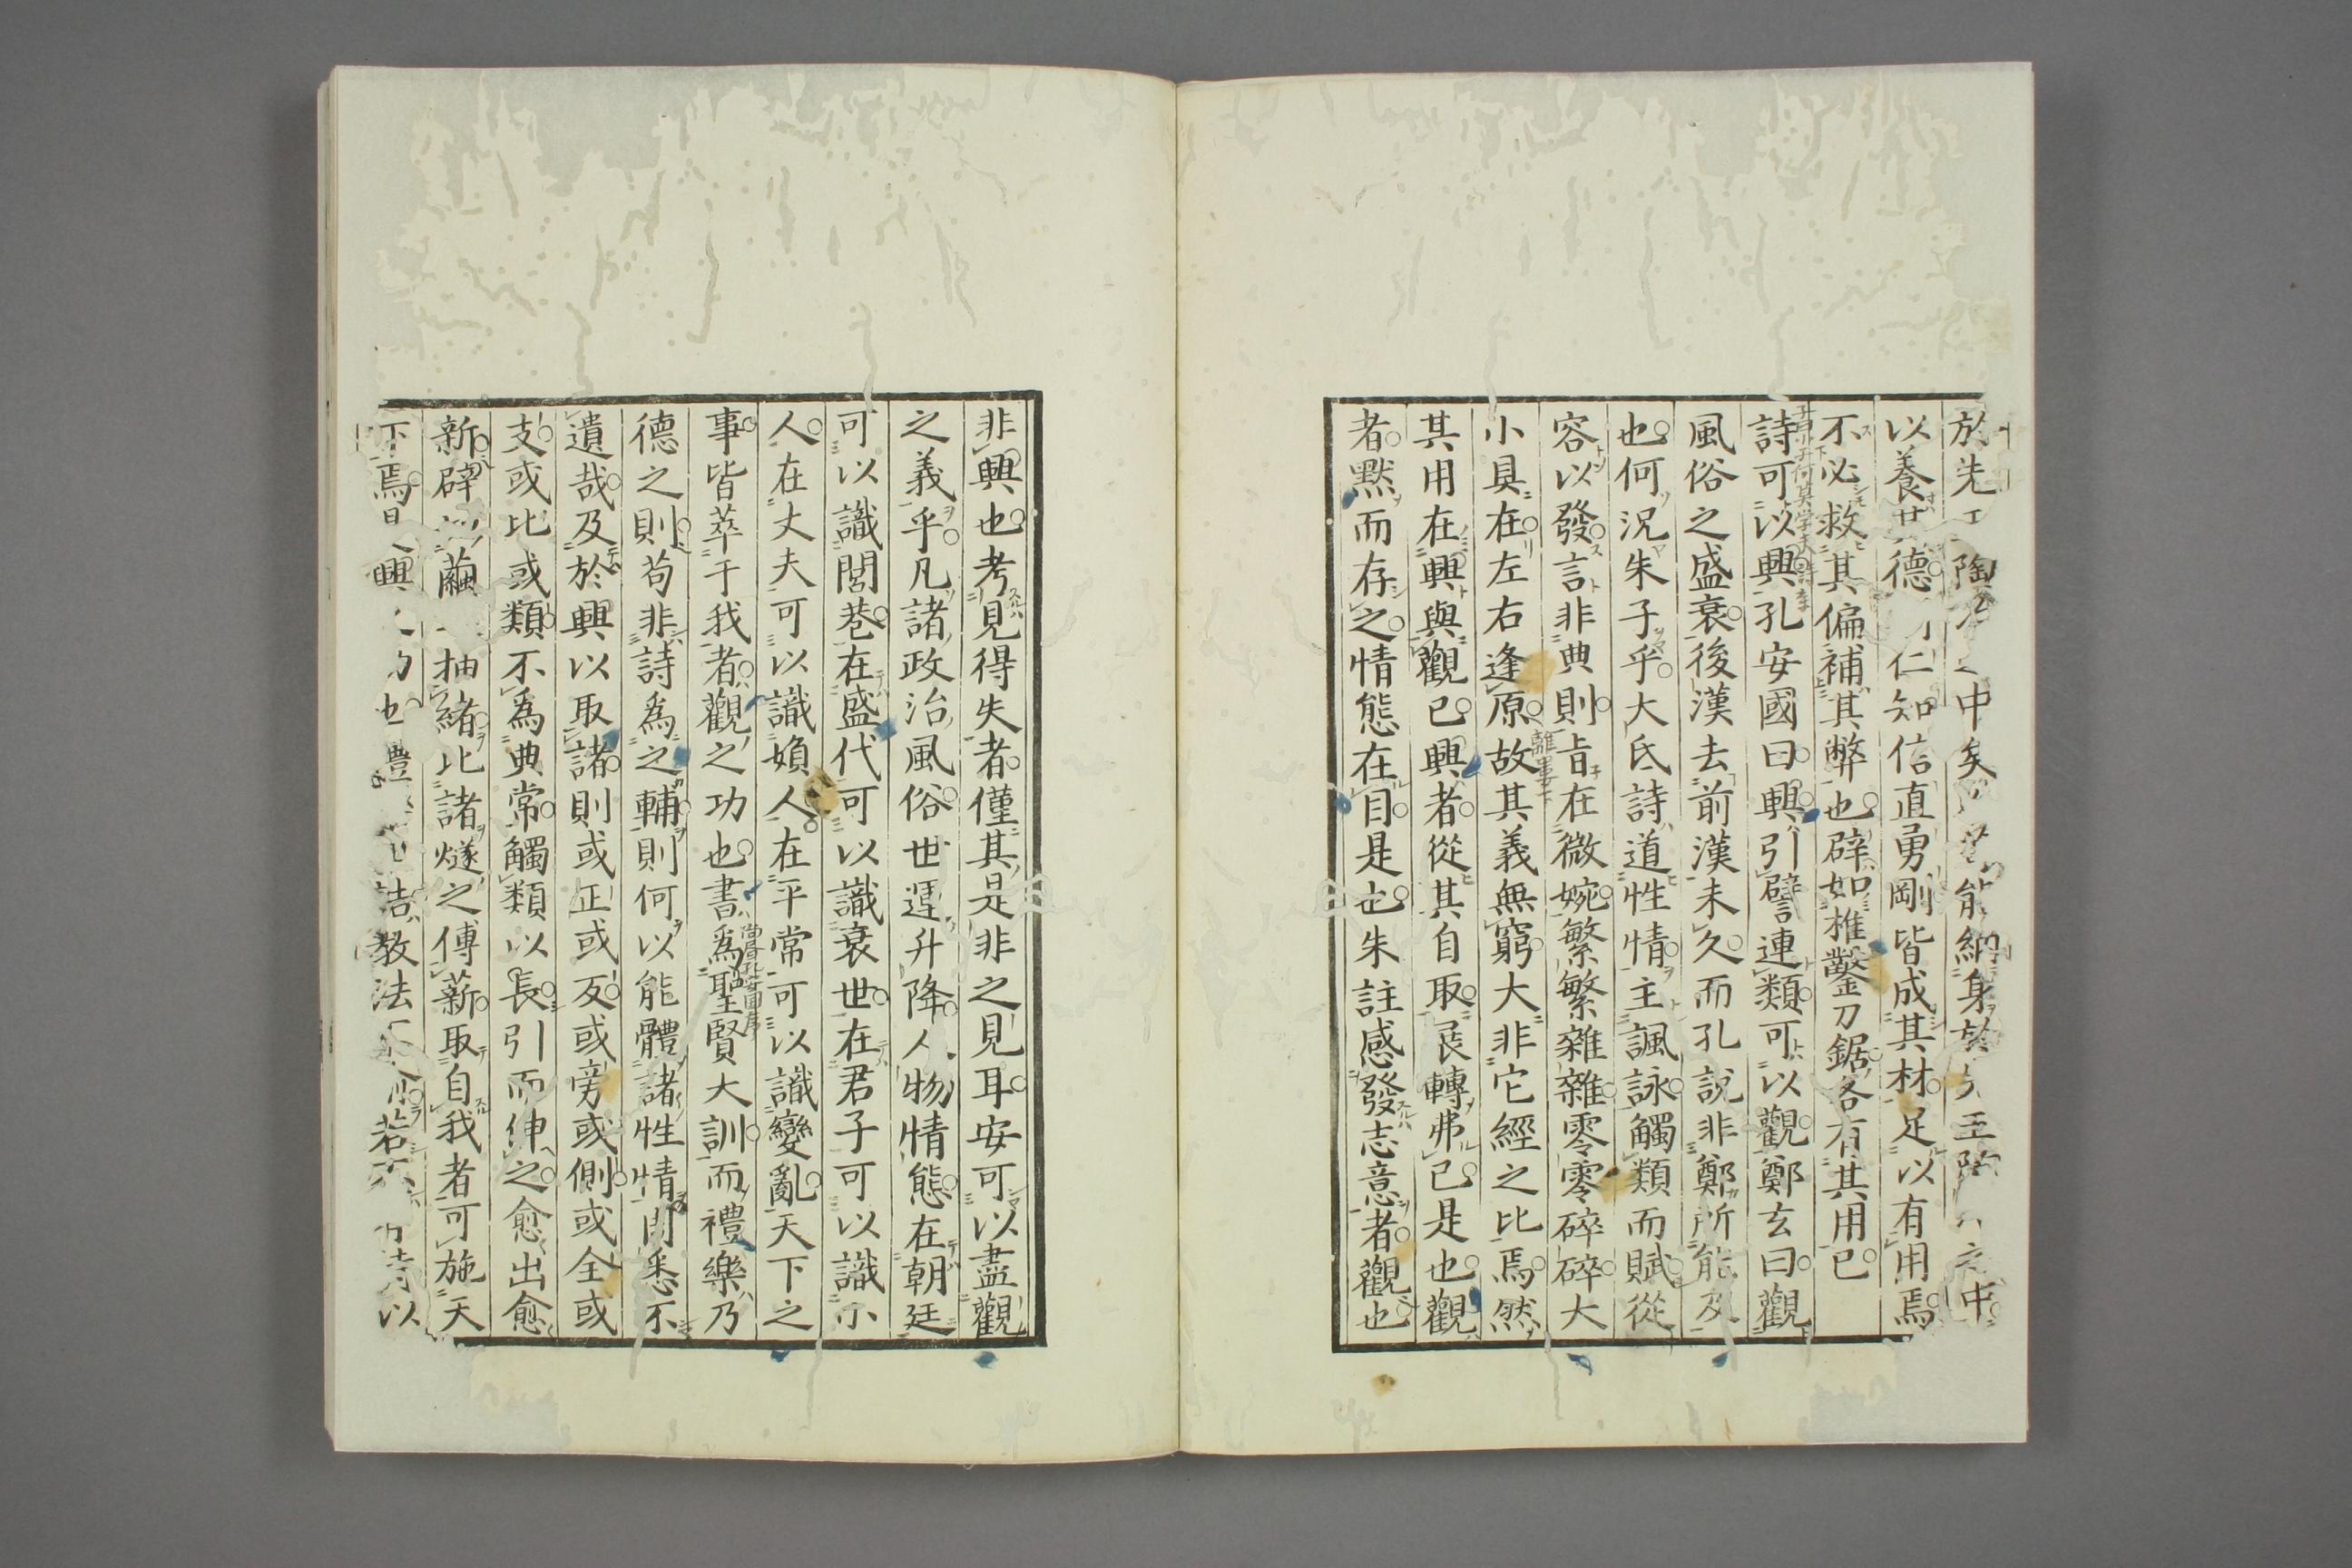 於先 陶 中矣 能納身於 王陶 之中
以養其德 仁知信直勇剛皆成其材足以有用焉
不必救其偏補其弊也辟如椎鑿刀鋸各有其用已
子曰小子何莫学夫詩
詩可以興孔安國曰興引譬連類可以觀鄭玄曰觀
風俗之盛衰後漢去前漢未久而孔說非鄭所能及
也何況朱子乎大氐詩道性情主諷詠觸類而賦從
容以發言非典則旨在微婉繁繁雜雜零零碎碎大
小具在左右逢原故其義無窮大非它經之比焉然
離婁下
其用在興與觀已興者從其自取展轉弗已是也觀
者默而存之情態在目是也朱註感發志意者觀也
非興也考見得失者僅其是非之見耳安可以盡觀
之義乎凡諸政治風俗世運升降人物情態在朝廷
可以識閭巷在盛代可以識衰世在君子可以識小
人在丈夫可以識婦人在平常可以識變亂天下之
事皆萃于我者觀之功也書爲聖賢大訓而禮樂乃
尚書孔安国序
德之則苟非詩爲之輔則何以能體諸性情周悉不
遺哉及於興以取諸則或正或反或旁或側或全或
支或比或類不爲典常觸類以長引而伸之愈出愈
新辟 繭 抽緒比諸燧之傳薪取自我者可施天
下焉是興 功也 禮 詰教法 若 詩以